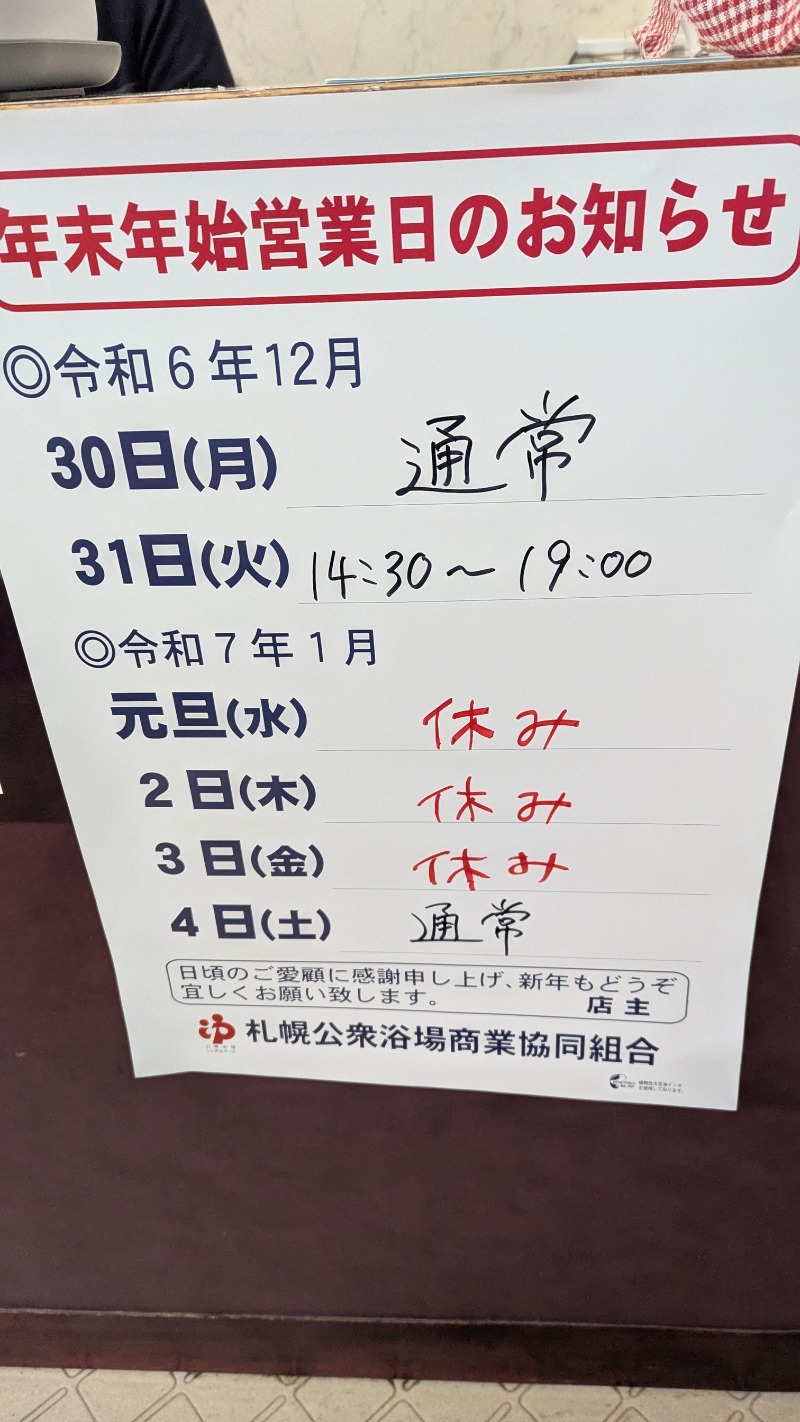 年末年始営業日のお知らせ
◎令和6年12月
30日(月) 通常
31日(火) 14:30〜19:00
◎令和7年1月
元旦(水) 休み
2日(木) 休み
3日(金) 休み
4日(土) 通常
日頃のご愛顧に感謝申し上げ、新年もどうぞ
宜しくお願い致します。 店主
札幌公衆浴場商業協同組合